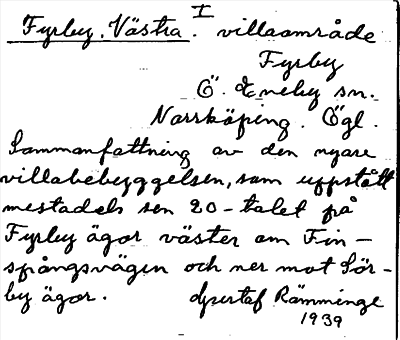 I
Fyrby, Västra. villaområde
Fyrby
Ö. Eneby sn.
Norrköping. Ögl.
Sammanfattning av den nyare
villabebyggelsen, som uppstått
mestadels sen 20-talet på
Fyrby ägor väster om Fin-
spångsvägen och ner mot Sör-
by ägor. Rämminge
1939